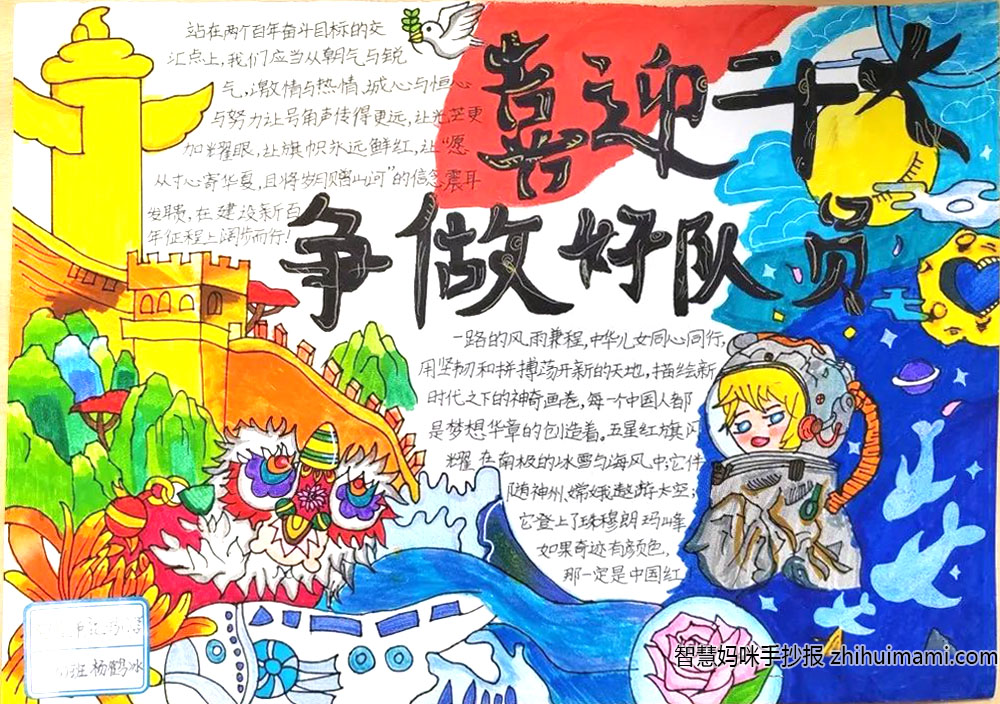 喜迎二十大
争做好队员
站在两个百年奋斗目标的交
汇点上,我们应当从朝气与锐
气,激情与热情,诚心与恒心
与努力让号角声传得更远,让光芒更
加耀眼,让旗帜永远鲜红,让“愿
从寸心寄华夏,且将岁月赠山河”的信念震耳
发聩,在建设新百
年征程上阔步而行!
一路的风雨兼程,中华儿女同心同行,
用坚韧和拼搏荡开新的天地,描绘新
时代之下的神奇画卷,每一个中国人都
是梦想华章的创造着。五星红旗闪
耀在南极的冰雪与海风中;它伴
随神州、嫦娥遨游太空;
它登上了珠穆朗玛峰
如果奇迹有颜色,
那一定是中国红!
班 杨鹤冰
智慧妈咪手抄报 zhihuimami.com